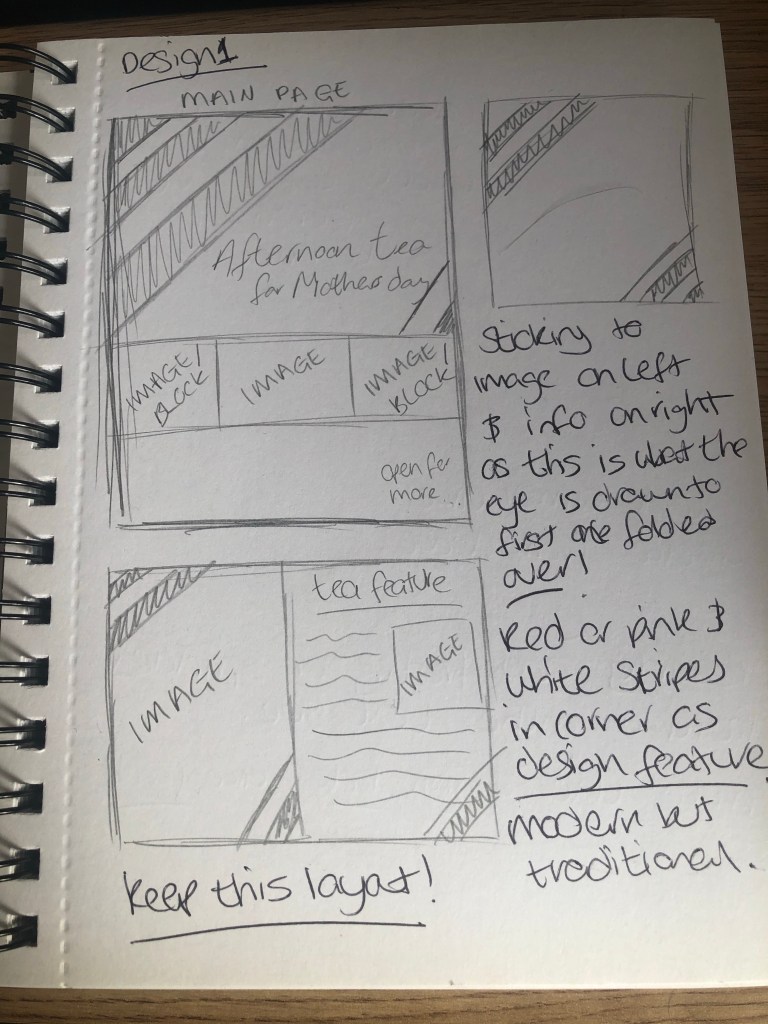 Design 1
MAIN PAGE
Afternoon tea
for Mothers day
IMAGE/
BLOCK
IMAGE
IMAGE/
BLOCK
open for
more...
Sticking to
image on left
& info on right
as this is what the
eye is drawn to
first one folded
over!
Red or pink &
white stripes
in corner as
design feature.
modern but
traditional.
IMAGE
tea feature
IMAGE
keep this layout!